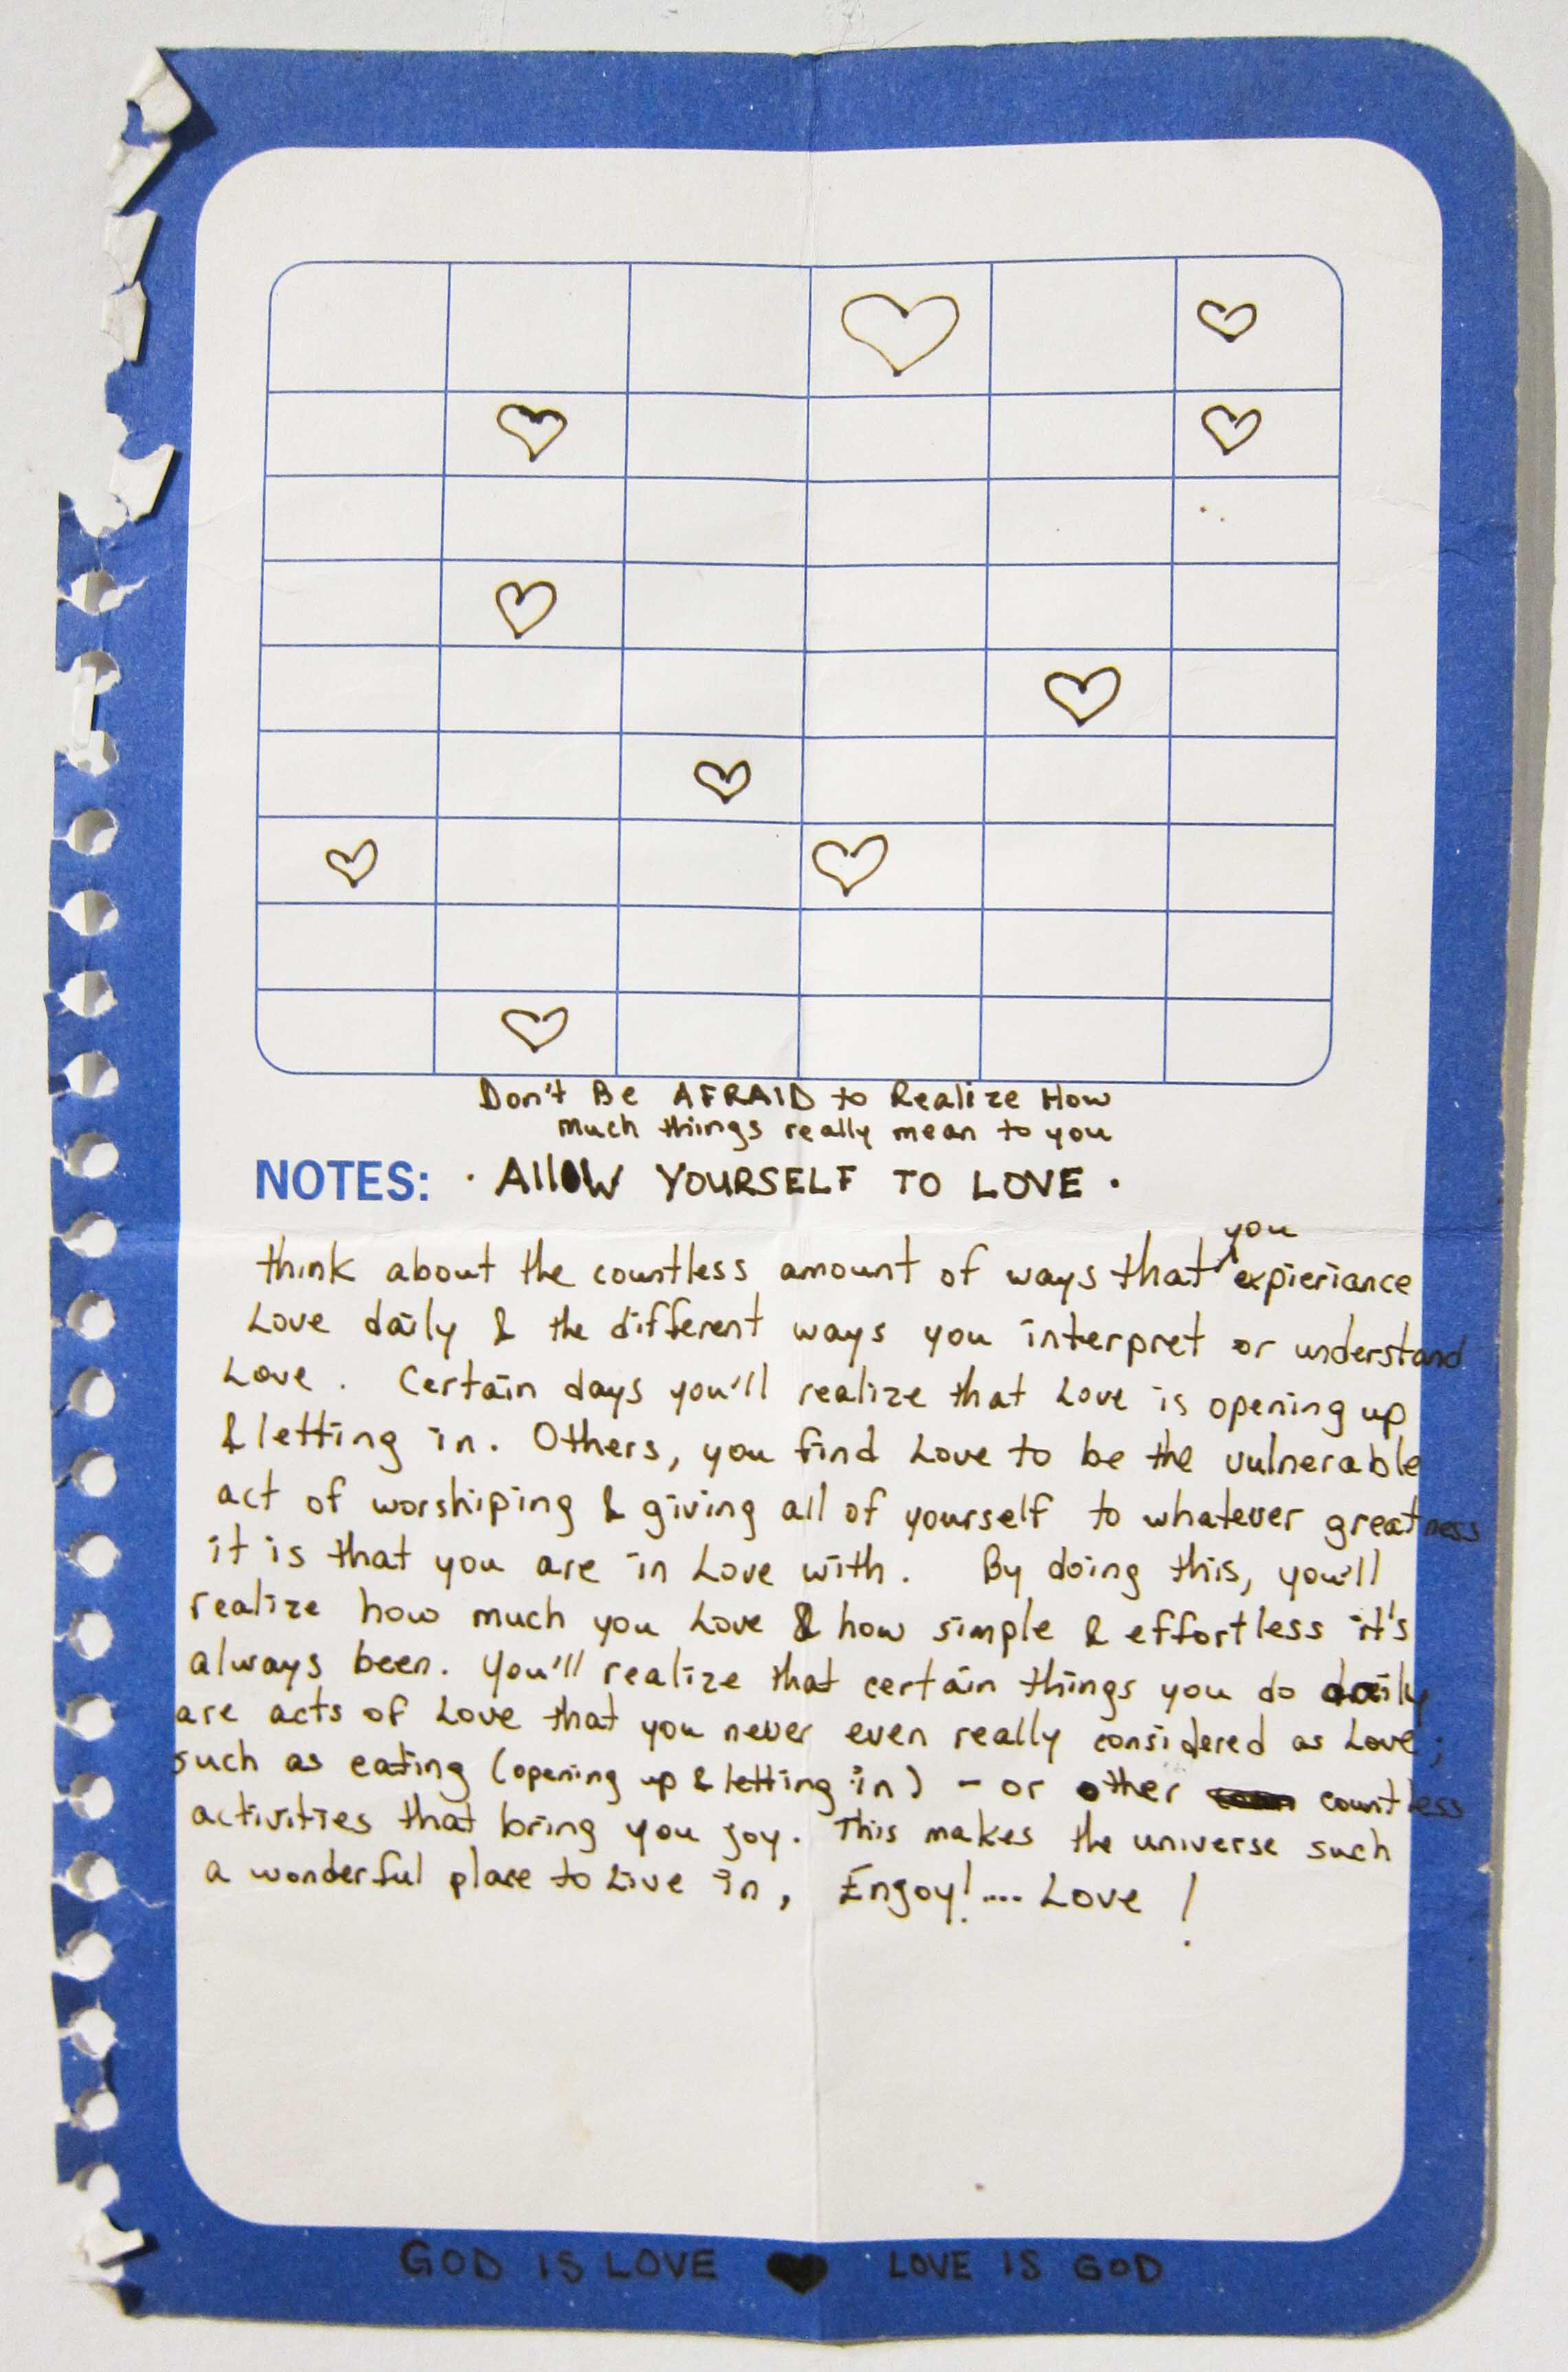 Don't Be AFRAID to Realize How
much things really mean to you
NOTES: · AllOW YOURSELF TO LOVE ·
think about the countless amount of ways that you expieriance
Love daily & the different ways you interpret or understand
Love. Certain days you'll realize that Love is opening up
& letting in. Others, you find Love to be the vulnerable
act of worshiping & giving all of yourself to whatever greatness
it is that you are in Love with. By doing this, you'll
realize how much you Love & how simple & effortless it's
always been. You'll realize that certain things you do daily
are acts of Love that you never even really considered as Love;
such as eating (opening up & letting in) - or other countless
activities that bring you joy. This makes the universe such
a wonderful place to Live in, Enjoy!.... Love!
GOD IS LOVE ♥ LOVE IS GOD